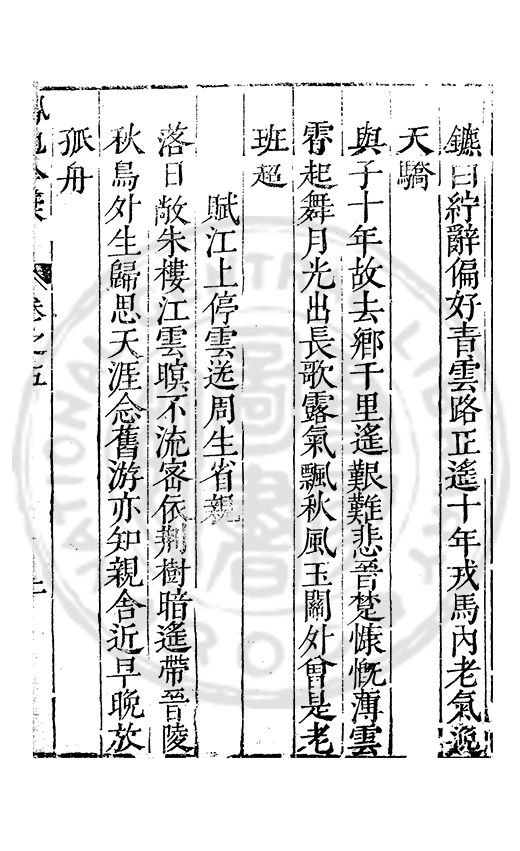 鑣白紵辭偏好青雲路正遙十年戎馬內老氣
天驕
與子十年故去鄉千里遙艱難悲晉楚慷慨薄雲
霄起舞月光出長歌露氣飄秋風玉關外曾是老
班超
賦江上停雲送周生省親
落日敞朱樓江雲暝不流密依荆樹暗遙帶晉陵
秋鳥外生歸思天涯念舊游亦知親舍近早晚放
孤舟
卷之五